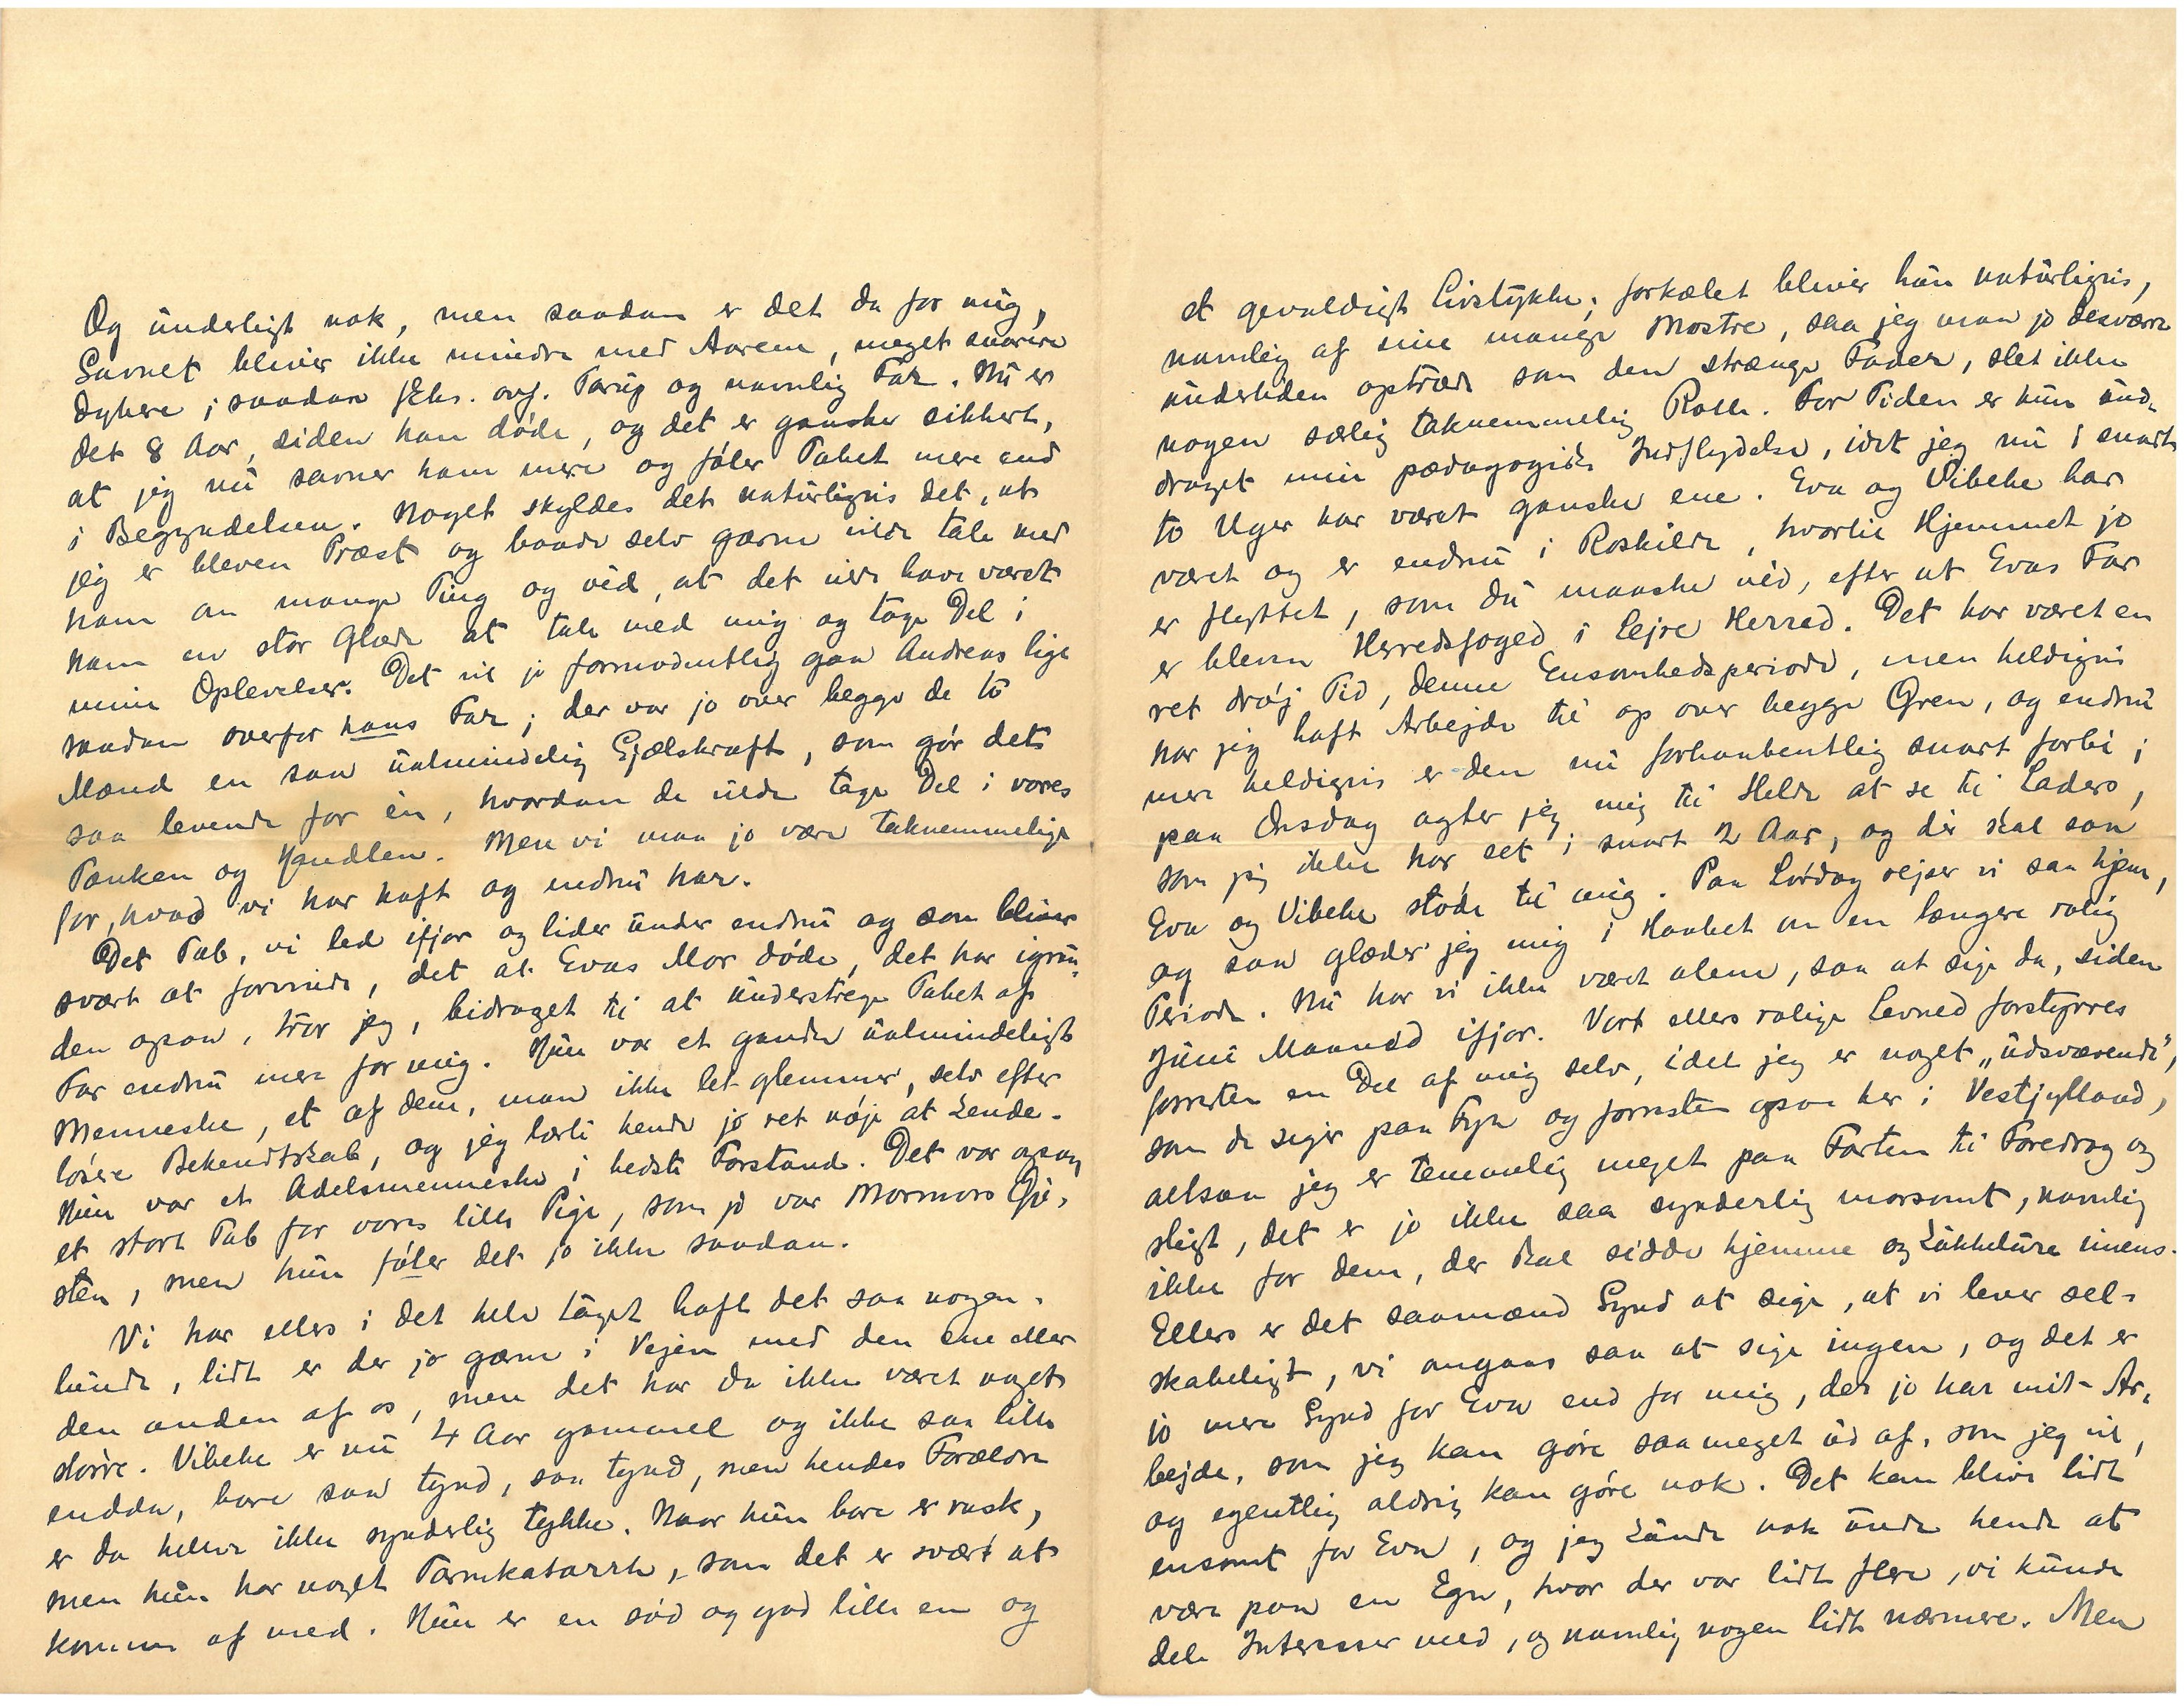 Og underligt nok, men saadan er det da for mig,
Savnet bliver ikke mindre med Aarene, meget snarere
dybere; saadan f Eks. ovf. Farup og navnlig Far. Nu er
det 8 Aar, siden han døde, og det er ganske sikkert,
at jeg nu savner ham mere og føler Tabet mere end
i Begyndelsen. Noget skyldes det naturligvis det, at
jeg er bleven Præst og baade selv gærne vilde tale med
ham om mange Ting og véd, at det vilde have været
ham en stor Glæde at tale med mig og tage Del i
mine Oplevelser. Det vil jo formodentlig gaa Andreas lige
saadan overfor hans Far; der var jo over begge de to
Mænd en saa ualmindelig Sjælskraft, som gør det
saa levende for én, hvordan de vilde tage Del i vores
Tanken og Handlen. Men vi maa jo være taknemmelige
for, hvad vi har haft og endnu har.
Det Tab, vi led ifjor og lider under endnu og som bliver
svært at forvinde, det at Evas Mor døde, det har igrun-
den ogsaa, tror jeg, bidraget til at understrege Tabet af
Far endnu mere for mig. Hun var et ganske ualmindeligt
Menneske, et af dem, man ikke let glemmer, selv efter
løsere Bekendtskab, og jeg lærte hende jo ret nøje at kende.
Hun var et Adelsmenneske i bedste Forstand. Det var ogsaa
et stort Tab for vores lille Pige, som jo var Mormors Øje-
sten, men hun føler det jo ikke saadan.
Vi har ellers i det hele taget haft det saa nogen-
lunde, lidt er der jo gærne i Vejen med den ene eller
den anden af os, men det har da ikke været noget
større. Vibeke er nu 4 Aar gammel og ikke saa lille
endda, bare saa tynd, saa tynd, men hendes Forældre
er da heller ikke synderlig tykke. Naar hun bare er rask,
men hun har noget Tarmkatarrh, som det er svært at
komme af med. Hun er en sød og god lille en og
et gevaldigt Livstykke; forkælet bliver hun naturligvis,
navnlig af sine mange Mostre, saa jeg maa jo desværre
undertiden optræde som den strænge Fader, slet ikke
nogen særlig taknemmelig Rolle. For Tiden er hun und-
draget min pædagogiske Indflydelse, idet jeg nu i snart
to Uger har været ganske ene. Eva og Vibeke har
været og er endnu i Roskilde, hvortil Hjemmet jo
er flyttet, som du maaske véd, efter at Evas Far
er bleven Herredsfoged i Lejre Herred. Det har været en
ret drøj Tid, denne Ensomhedsperiode, men heldigvis
har jeg haft Arbejde til op over begge Øren, og endnu
mere heldigvis er den nu forhaabentlig snart forbi;
paa Onsdag agter jeg mig til Helde at se til Laders,
som jeg ikke har set i snart 2 Aar, og dér skal saa
Eva og Vibeke støde til mig. Paa Lørdag rejser vi saa hjem,
og saa glæder jeg mig i Haabet om en længere rolig
Periode. Nu har vi ikke været alene, saa at sige da, siden
Juni Maaned ifjor. Vort ellers rolige Levned forstyrres
forresten en Del af mig selv, idet jeg er noget „udsvævende",
som de siger paa Fyn og forresten ogsaa her i Vestjylland,
altsaa jeg er temmelig meget paa Farten til Foredrag og
sligt, det er jo ikke saa synderlig morsomt, navnlig
ikke for dem, der skal sidde hjemme og kukkelure imens.
Ellers er det saamænd Synd at sige, at vi lever sel-
skabeligt, vi omgaas saa at sige ingen, og det er
jo mere Synd for Eva end for mig, der jo har mit Ar-
bejde, som jeg kan gøre saa meget ud af, som jeg vil,
og egentlig aldrig kan gøre nok. Det kan blive lidt
ensomt for Eva, og jeg kunde nok unde hende at
være paa en Egn, hvor der var lidt flere, vi kunde
dele Interesser med, og navnlig nogen lidt nærmere. Men